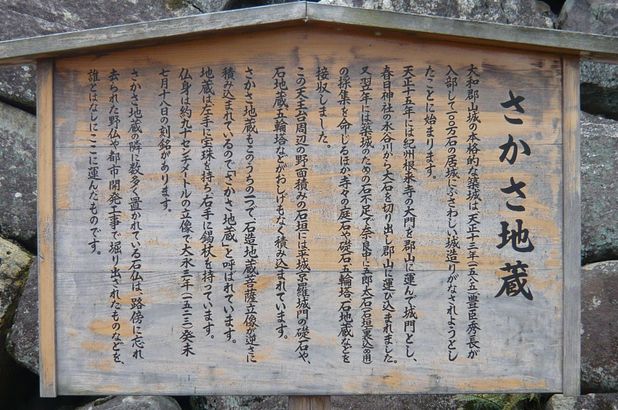 さかさ地蔵
大和郡山城の本格的な築城は天正十三年(一五八五)豊臣秀長が
入部して一〇〇万石の居城にふさわしい城造りがなされようとし
たことに始まります。
天正十五年には紀州根来寺の大門を郡山に運んで城門とし、
春日神社の水谷川から大石を切り出し郡山に運びこまれました。
又翌年には築城のための石不足で奈良中に五郎太石(石垣裏込め用)
の採集を命じるほか寺々の庭石や礎石五輪塔石地蔵などを
接収しました。
この天主台周辺の野面積みの石垣には平城京羅城門の礎石や、
石地蔵五輪塔などがおしげもなく積み込まれています。
さかさ地蔵もこのうちの一つで、石造地蔵菩薩立像が逆さに
積み込まれているので「さかさ地蔵」と呼ばれています。
地蔵は左手に宝珠を持ち右手に錫杖を持っています。
仏身は約九十センチメートルの立像で大永三年(一五二三)癸未
七月十八日の刻銘があります。
さかさ地蔵の隣に数多く置かれている石仏は、路傍に忘れ
去られた野仏や都市開発工事で堀り出されたものなどを、
誰とはなしにここに運んだものです。